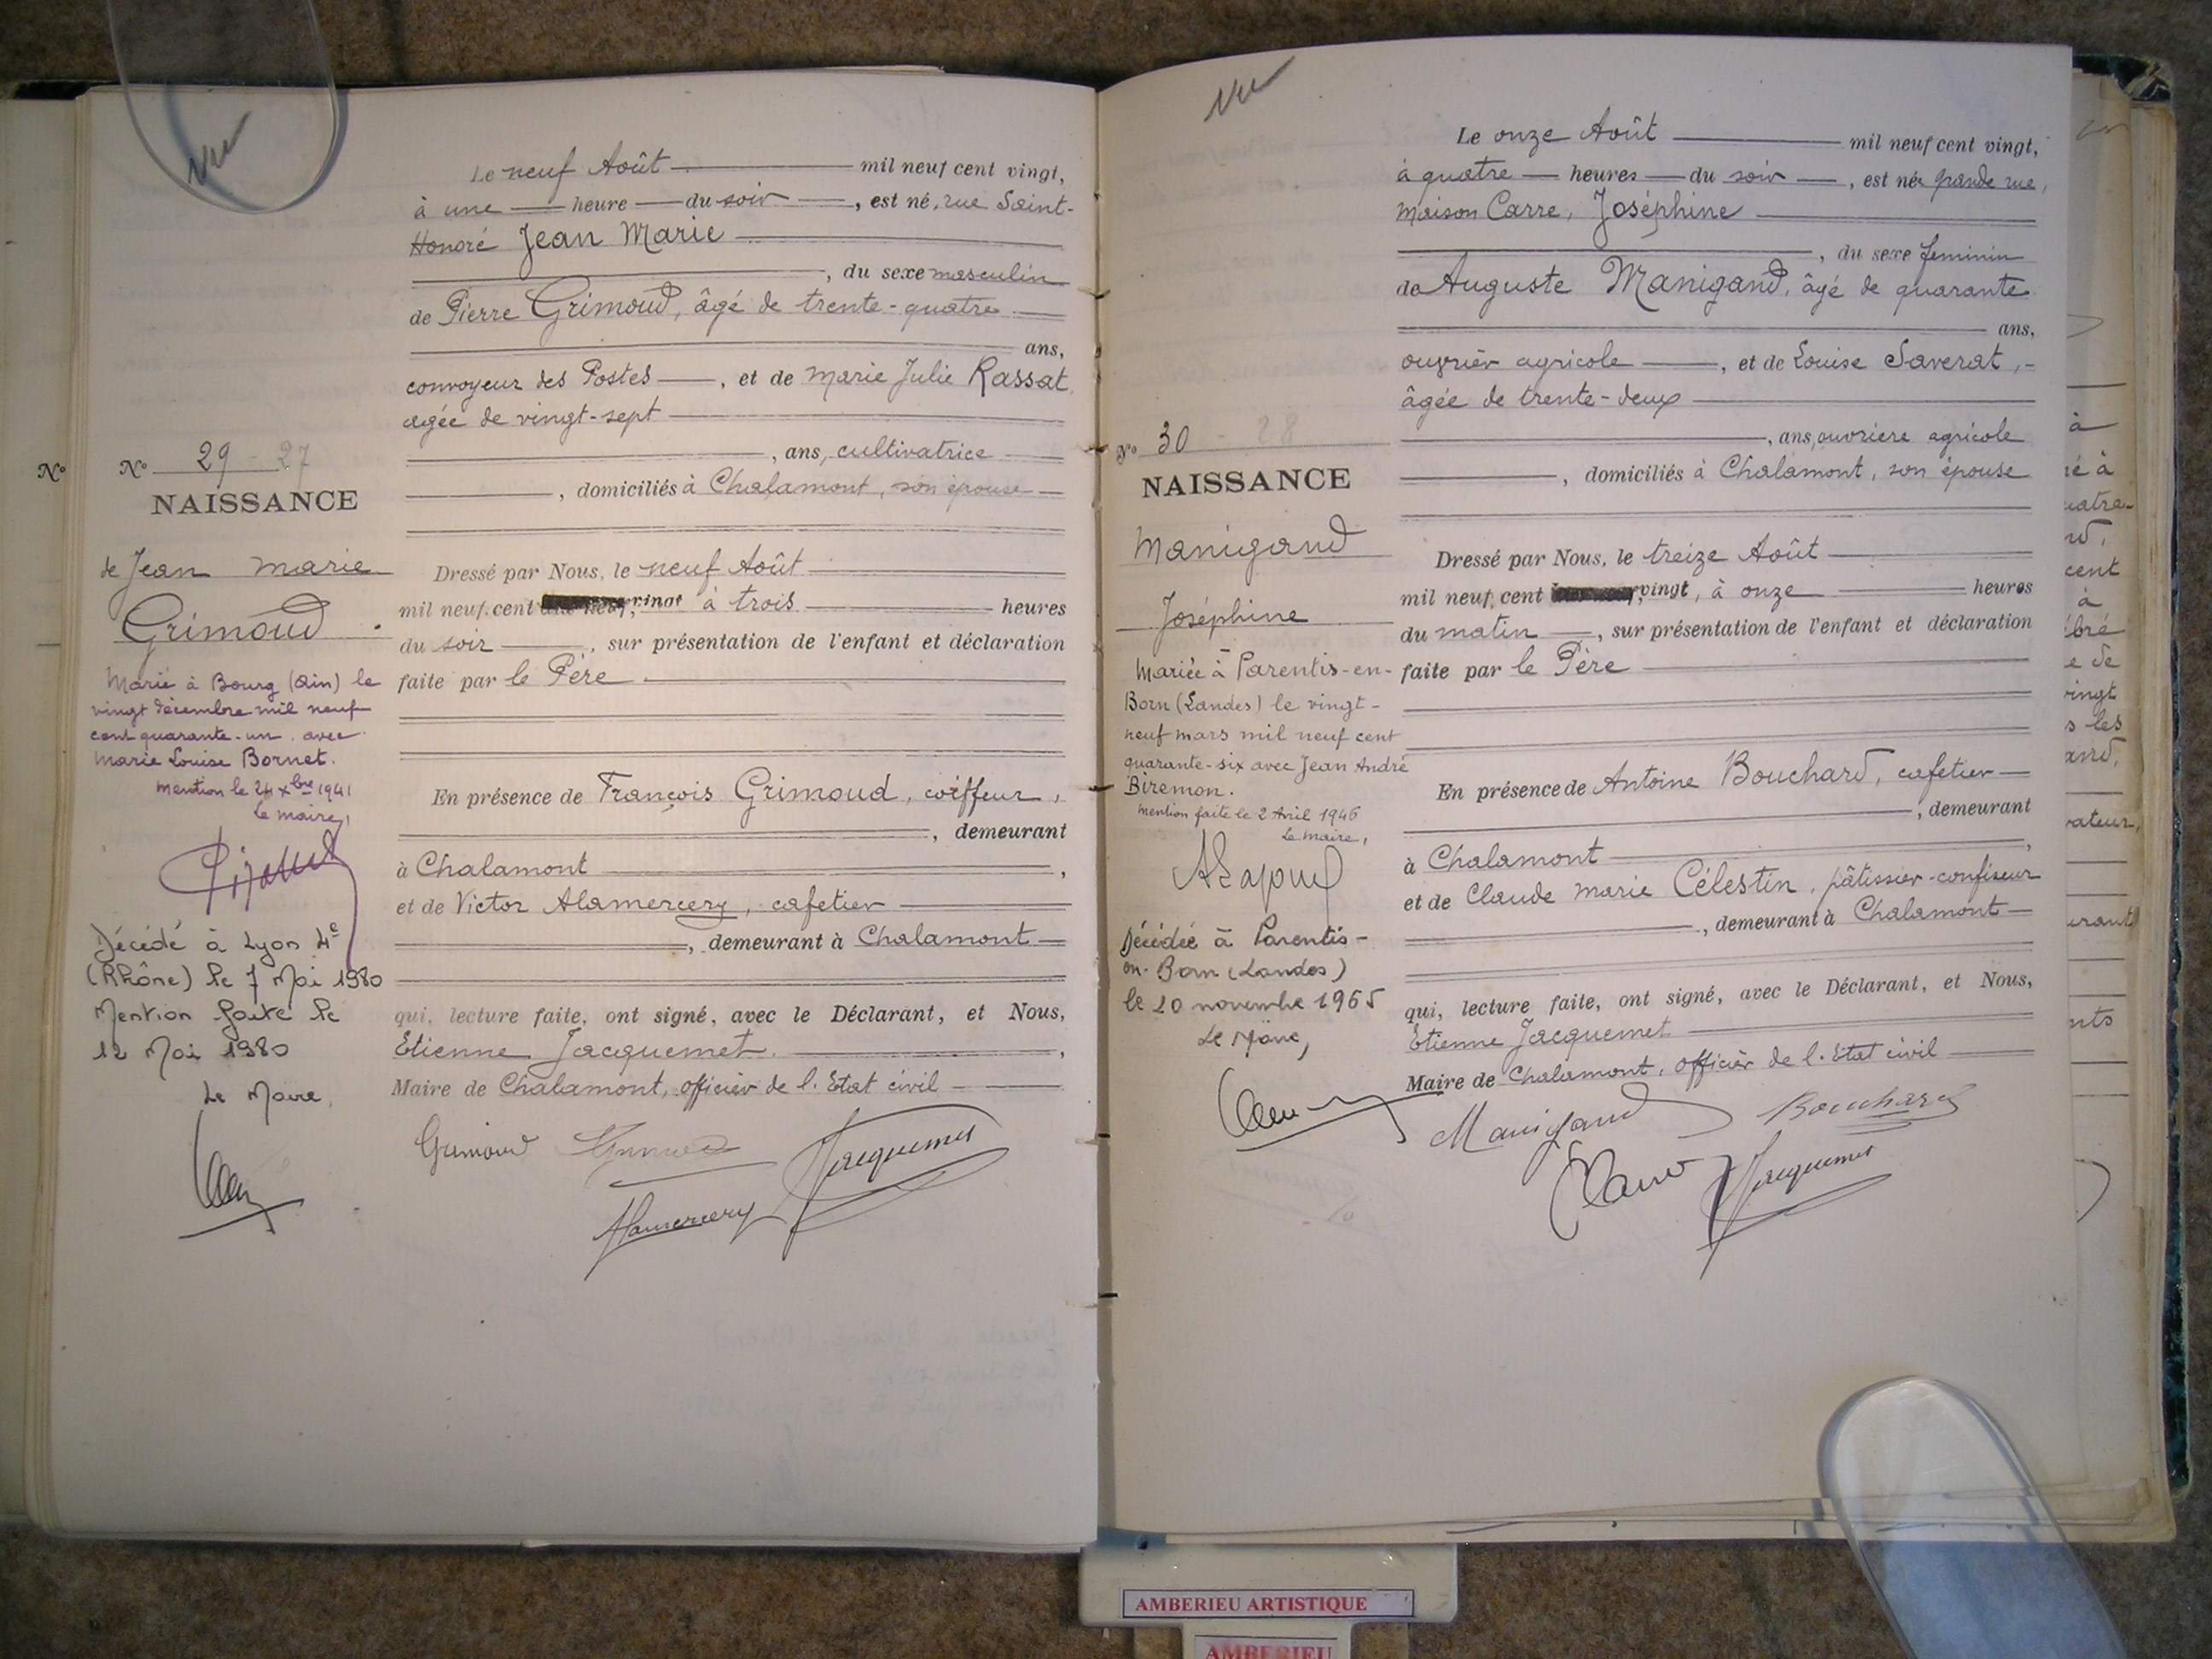 vu
Le neuf Août mil neuf cent vingt,
à une heure du soir, est né, rue Saint-
Honoré Jean Marie
, du sexe masculin
de Pierre Grimoud, âgé de trente-quatre
ans,
convoyeur des Postes, et de Marie Julie Rassat,
agée de vingt-sept
, ans, cultivatrice
, domiciliés à Chalamont, son épouse
Nº
Nº 29 - 27
NAISSANCE
de Jean Marie
Grimoud
Marié à Bourg (Ain) le
vingt décembre mil neuf
cent quarante-un avec
Marie Louise Bornet.
Mention le 24 xbre 1941
Le maire,
Décédé à Lyon 4e
(Rhône) le 7 Mai 1980
Mention faite le
12 Mai 1980
Le Maire,
Dressé par Nous, le neuf Août
mil neuf cent vingt à trois heures
du soir, sur présentation de l'enfant et déclaration
faite par le Père
En présence de François Grimoud, coiffeur,
, demeurant
à Chalamont,
et de Victor Alamercery, cafetier
, demeurant à Chalamont
qui, lecture faite, ont signé, avec le Déclarant, et Nous,
Etienne Jacquemet,
Maire de Chalamont, officier de l'Etat civil
Grimoud Jacquemet
Alamercery
vu
Le onze Août mil neuf cent vingt,
à quatre heures du soir, est née grande rue,
maison Carre, Joséphine
, du sexe feminin
de Auguste Manigand, âgé de quarante
ans,
ouvrier agricole, et de Louise Saverat,
âgée de trente-deux
, ans, ouvriere agricole
, domiciliés à Chalamont, son épouse
Nº 30 - 28
NAISSANCE
Manigand
Joséphine
Mariée à Parentis-en-
Born (Landes) le vingt-
neuf mars mil neuf cent
quarante-six avec Jean André
Biremon.
Mention faite le 2 Avril 1946
Le maire,
Décédée à Parentis-
en-Born (Landes)
le 20 novembre 1965
Le Maire,
Dressé par Nous, le treize Août
mil neuf cent vingt, à onze heures
du matin, sur présentation de l'enfant et déclaration
faite par le Père
En présence de Antoine Bouchard, cafetier
, demeurant
à Chalamont,
et de Claude Marie Célestin, pâtissier-confiseur
, demeurant à Chalamont
qui, lecture faite, ont signé, avec le Déclarant, et Nous,
Etienne Jacquemet
Maire de Chalamont, officier de l'Etat civil
Manigand Bouchard
Jacquemet
à
né à
uatre-
nd,
cent
à
bré
e de
vingt
s les
and,
vateur,
urant
nts
AMBERIEU ARTISTIQUE
AMBERIEU